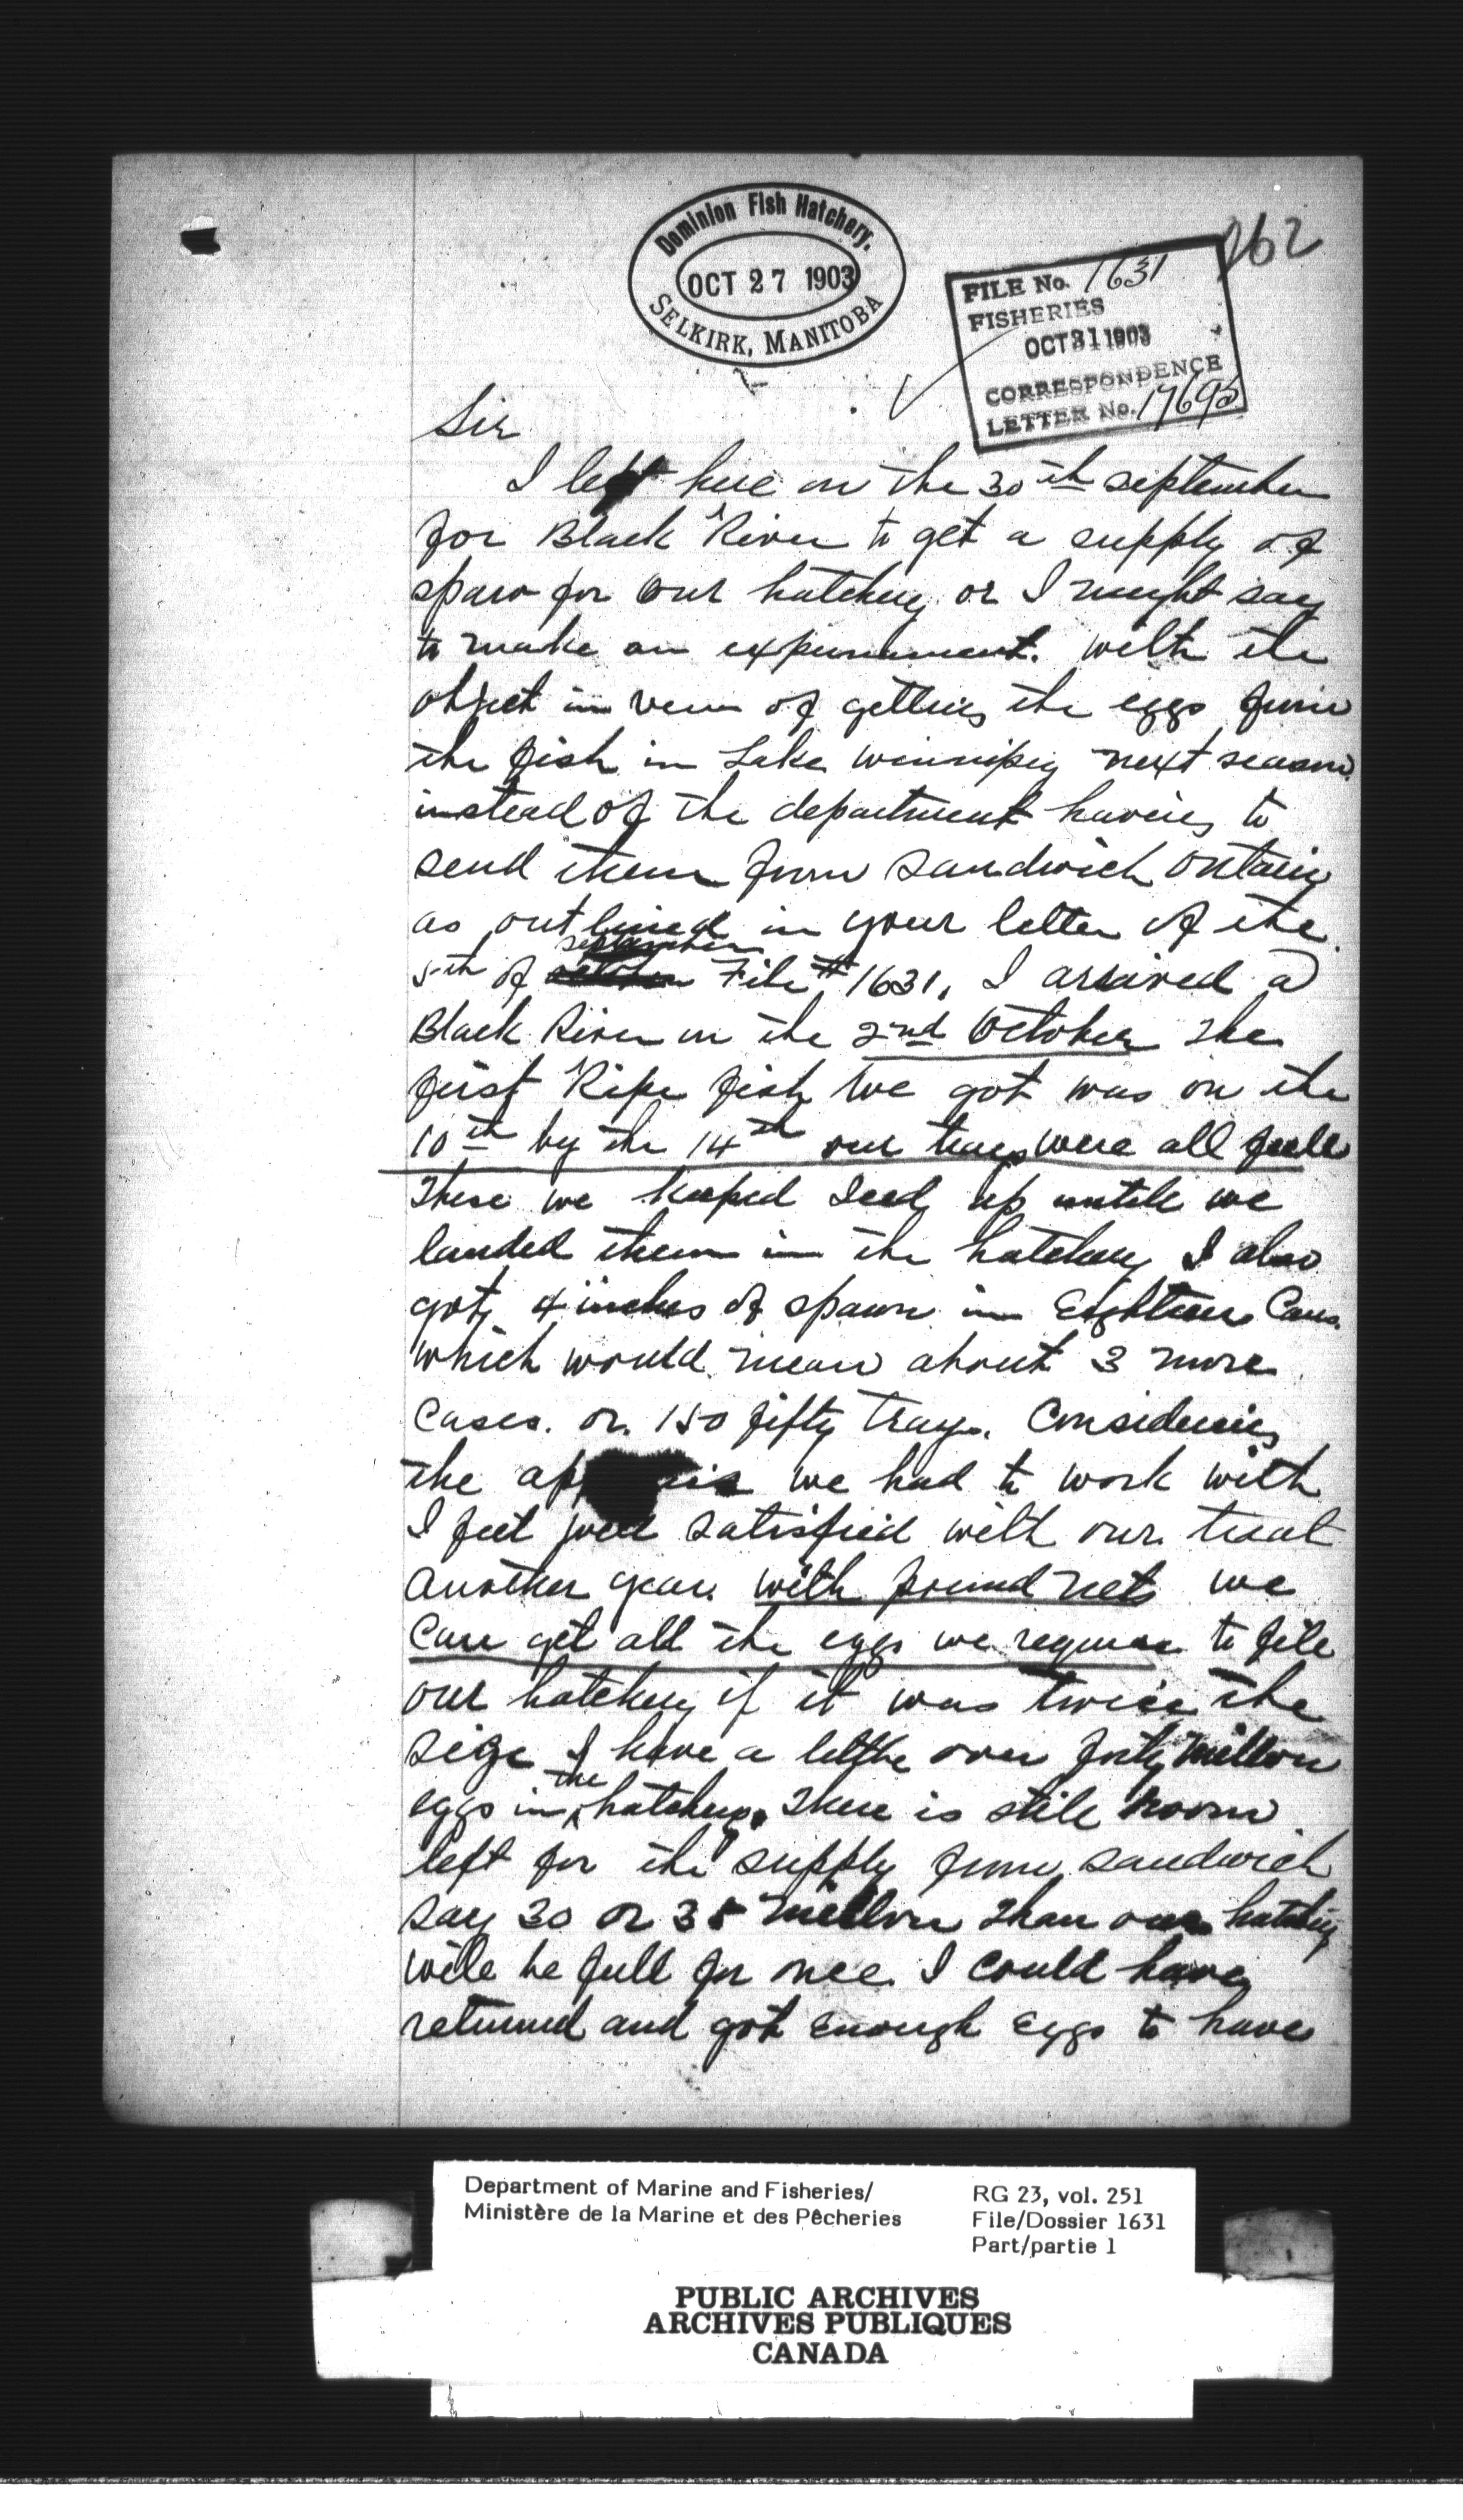 Dominion Fish Hatchery.
OCT 27 1903
SELKIRK, MANITOBA
262
FILE No. 1631
FISHERIES
OCT 31 1903
CORRESPONDENCE
LETTER No. 17695
Sir
I left here on the 30th september
for Black River to get a supply of
spaw for our hatchery or I might say
to make an expurument. with the
object in veiw of getting the eggs from
the fish in Lake winnipeg next season
instead of the department having to
send them from Sandwich Ontario
as outlined in your letter of the
september
5th of File # 1631, I arrived a
Black River on the 2nd October The
first Ripe fish we got was on the
10th by the 14th our trays were all full
These we keeped Iced up untill we
landed them in the hatchery I also
got 4 inches of spawn in Eighteen Cans.
which would mean about 3 more
Cases. or 150 fifty trays. Considering
the we had to work with
I feel well satisfied with our
another year. with pound nets we
Can get all the eggs we require to fill
our hatchery if it was twice the
size I have a little over forty million
eggs in the hatchery. There is still room
left for the supply from sandwich
say 30 or 35 million Than our hatchery
will be full for once. I could have
returned and got enough eggs to have
Department of Marine and Fisheries/
Ministère de la Marine et des Pêcheries
RG 23, vol. 251
File/Dossier 1631
Part/partie 1
PUBLIC ARCHIVES
ARCHIVES PUBLIQUES
CANADA